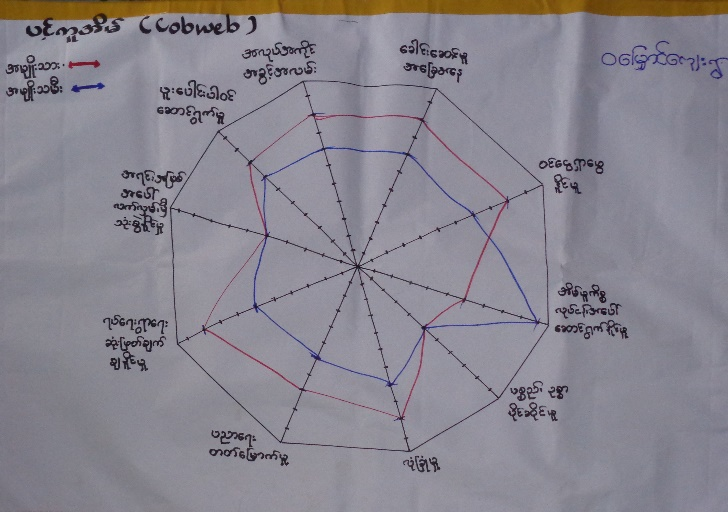 ပင့်ကူအိမ် (Cobweb)
အမျိုးသား
အမျိုးသမီး
ဝမြှောင်ကျေးရွာ
အလုပ်အကိုင်
အခွင့်အလမ်း
ခေါင်းဆောင်မှု
အခြေအနေ
ဝင်ငွေရှာဖွေ
နိုင်မှု
အိမ်မှုကိစ္စ
လုပ်ငန်းအပေါ်
ဆောင်ရွက်နိုင်မှု
ပစ္စည်း ဥစ္စာ
ပိုင်ဆိုင်မှု
လုံခြုံမှု
ပညာရေး
တတ်မြောက်မှု
ရပ်ရေးရွာရေး
ဆုံးဖြတ်ချက်
ချနိုင်မှု
အရင်းအမြစ်
အပေါ်
လက်လှမ်းမှီ
သုံးစွဲနိုင်မှု
ပူးပေါင်းပါဝင်
ဆောင်ရွက်မှု